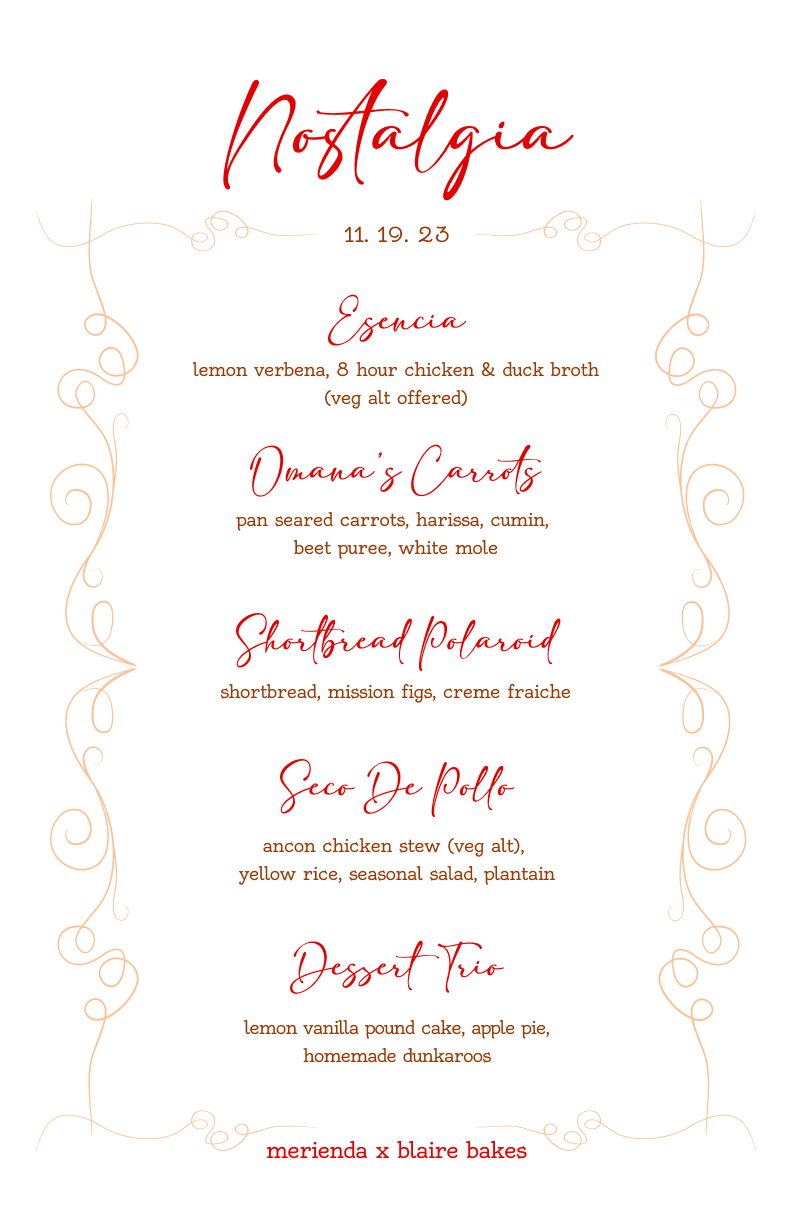 Nostalgia
11. 19. 23
Esencia
lemon verbena, 8 hour chicken & duck broth
(veg alt offered)
Omana's Carrots
pan seared carrots, harissa, cumin,
beet puree, white mole
Shortbread Polaroid
shortbread, mission figs, creme fraiche
Seco De Pollo
ancon chicken stew (veg alt),
yellow rice, seasonal salad, plantain
Dessert Trio
lemon vanilla pound cake, apple pie,
homemade dunkaroos
merienda x blaire bakes